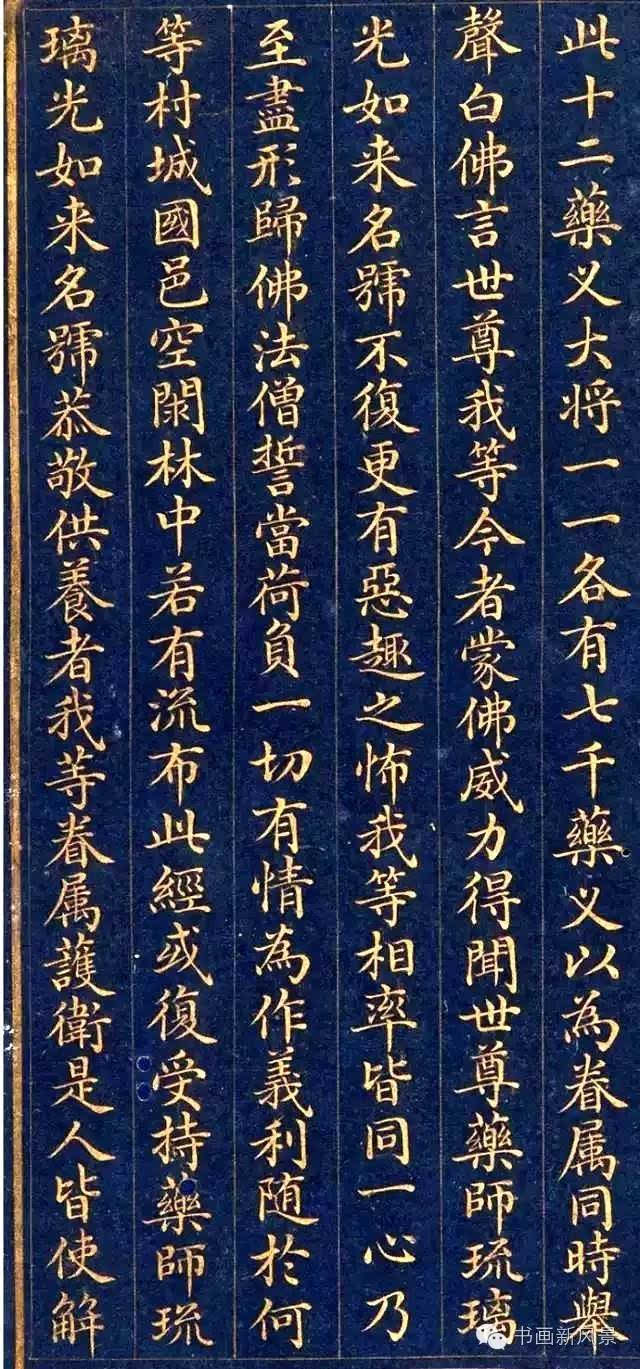 此十二藥义大将一一各有七千藥义以為眷属同時舉
聲白佛言世尊我等今者蒙佛威力得聞世尊藥師琉璃
光如来名號不復更有惡趣之怖我等相率皆同一心乃
至盡形歸佛法僧誓當荷負一切有情為作義利随於何
等村城國邑空閑林中若有流布此經或復受持藥師琉
璃光如来名號恭敬供養者我等眷属護衛是人皆使解
书画新风景